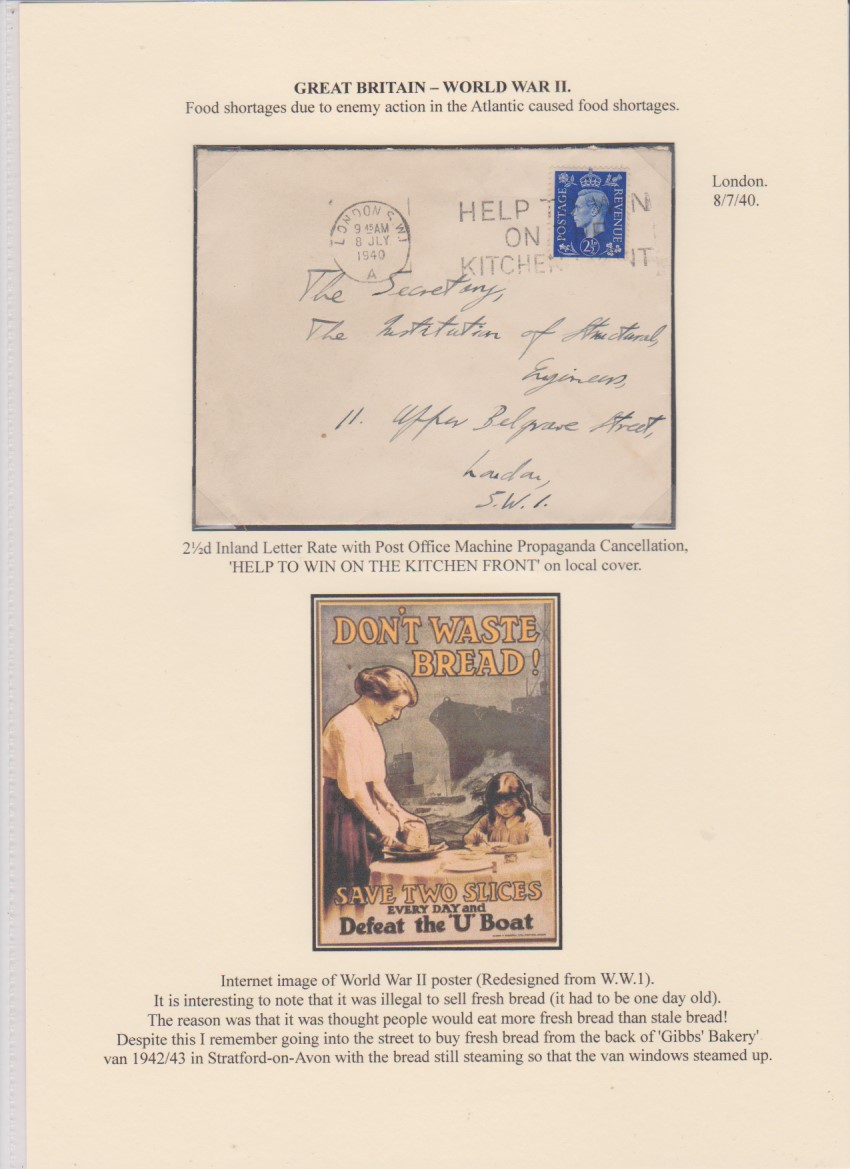 GREAT BRITAIN – WORLD WAR II.
Food shortages due to enemy action in the Atlantic caused food shortages.
London.
8/7/40.
LONDON S.W.1
9 15 AM
8 JLY
1940
A
HELP T N
ON
KITCHEN NT
POSTAGE REVENUE
2½D
The Secretary,
The Institution of Structural
Engineers,
11. Upper Belgrave Street,
London,
S.W.1.
2½d Inland Letter Rate with Post Office Machine Propaganda Cancellation,
'HELP TO WIN ON THE KITCHEN FRONT' on local cover.
DON'T WASTE
BREAD!
SAVE TWO SLICES
EVERY DAY and
Defeat the 'U' Boat
Internet image of World War II poster (Redesigned from W.W.1).
It is interesting to note that it was illegal to sell fresh bread (it had to be one day old).
The reason was that it was thought people would eat more fresh bread than stale bread!
Despite this I remember going into the street to buy fresh bread from the back of 'Gibbs' Bakery'
van 1942/43 in Stratford-on-Avon with the bread still steaming so that the van windows steamed up.